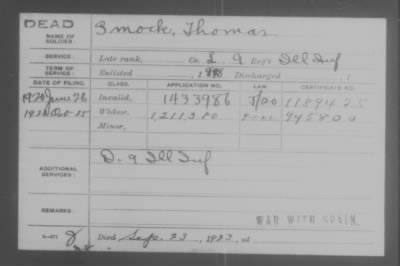 DEAD
NAME OF SOLDIER: Smock, Thomas
SERVICE: Late rank, Co. L. 9 Reg't Ill Inf
TERM OF SERVICE: Enlisted , 1898 Discharged , 1
DATE OF FILING. CLASS. APPLICATION NO. LAW. CERTIFICATE NO.
1920 June 26 Invalid, 1433986 1189425
Oct. 25 Widow, 1,211,380 945800
Minor,
ADDITIONAL SERVICES: D. 9 Ill Inf
REMARKS:
WAR WITH SPAIN.
Died Sep. 23, 1923, at